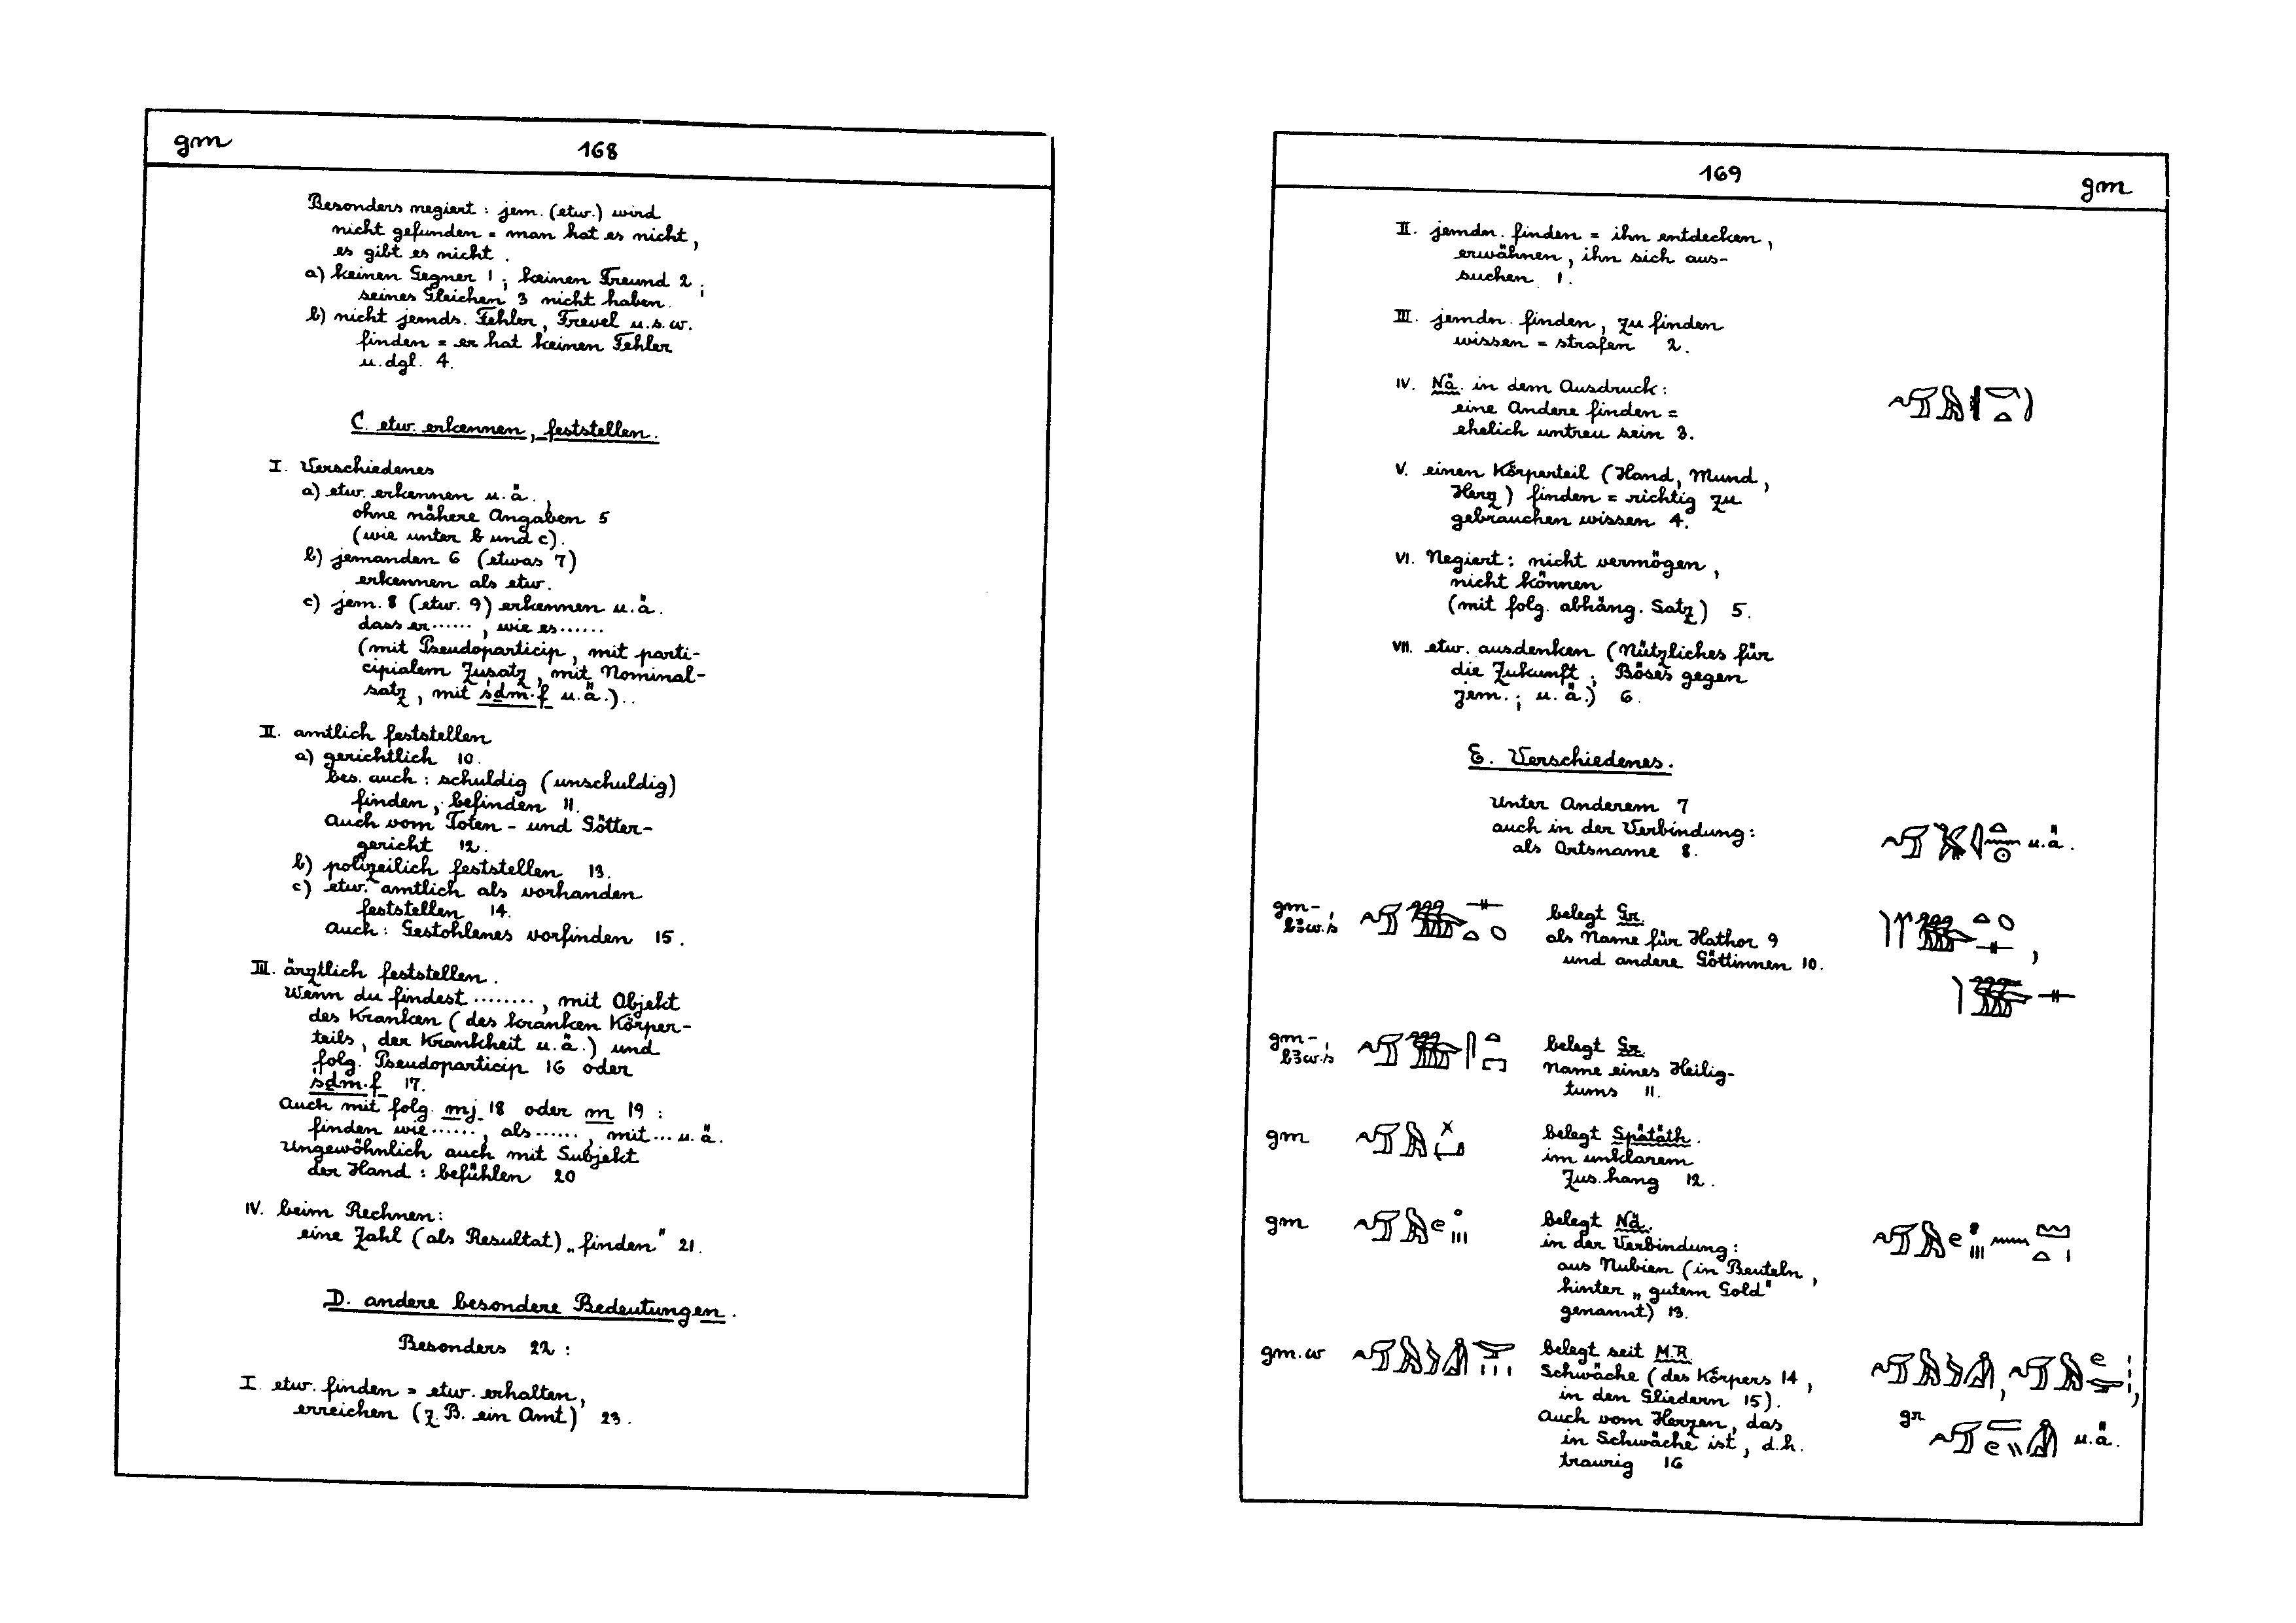 gm
168
Besonders negiert : jem. (etw.) wird
nicht gefunden = man hat es nicht,
es gibt es nicht.
a) keinen Gegner 1 ; keinen Freund 2 ;
seines Gleichen 3 nicht haben.
b) nicht jemds. Fehler, Frevel u.s.w.
finden = er hat keinen Fehler
u. dgl. 4.
C. etw. erkennen, feststellen.
I. Verschiedenes
a) etw. erkennen u. ä.,
ohne nähere Angaben 5
(wie unter b und c).
b) jemanden 6 (etwas 7)
erkennen als etw.
c) jem. 8 (etw. 9) erkennen u. ä.
dass er ......, wie es ......
(mit Pseudoparticip, mit parti-
cipialem Zusatz, mit Nominal-
satz, mit śdm·f u. ä.)..
II. amtlich feststellen
a) gerichtlich 10.
bes. auch : schuldig (unschuldig)
finden, befinden 11.
Auch vom Toten- und Götter-
gericht 12.
b) polizeilich feststellen 13.
c) etw. amtlich als vorhanden
feststellen 14.
Auch : Gestohlenes vorfinden 15.
III. ärztlich feststellen.
Wenn du findest ........, mit Objekt
des Kranken (des kranken Körper-
teils, der Krankheit u. ä.) und
folg. Pseudoparticip 16 oder
śdm·f 17.
Auch mit folg. mj 18 oder m 19 :
finden wie ......, als ......, mit ... u. ä.
Ungewöhnlich auch mit Subjekt
der Hand : befühlen 20
IV. beim Rechnen :
eine Zahl (als Resultat) „finden" 21.
D. andere besondere Bedeutungen.
Besonders 22 :
I. etw. finden = etw. erhalten,
erreichen (z. B. ein Amt) 23.
169
gm
II. jemdn. finden = ihn entdecken,
erwähnen, ihn sich aus-
suchen 1.
III. jemdn. finden, zu finden
wissen = strafen 2.
IV. Nä. in dem Ausdruck :
eine Andere finden =
ehelich untreu sein 3.
V. einen Körperteil (Hand, Mund,
Herz) finden = richtig zu
gebrauchen wissen 4.
VI. Negiert : nicht vermögen,
nicht können
(mit folg. abhäng. Satz) 5.
VII. etw. ausdenken (Nützliches für
die Zukunft ; Böses gegen
jem. ; u. ä.) 6.
E. Verschiedenes.
Unter Anderem 7
auch in der Verbindung :
als Ortsname 8.
u. ä.
gm-
bꜣw.ś
belegt Gr.
als Name für Hathor 9
und andere Göttinnen 10.
gm-
bꜣw.ś
belegt Gr.
Name eines Heilig-
tums 11.
gm
belegt Spätäth.
im unklarem
Zus. hang 12.
gm
belegt Nä.
in der Verbindung :
aus Nubien (in Beuteln,
hinter „gutem Gold"
genannt) 13.
gm.w
belegt seit M.R.
Schwäche (des Körpers 14,
in den Gliedern 15).
Auch vom Herzen, das
in Schwäche ist, d.h.
traurig 16
gr
u. ä.